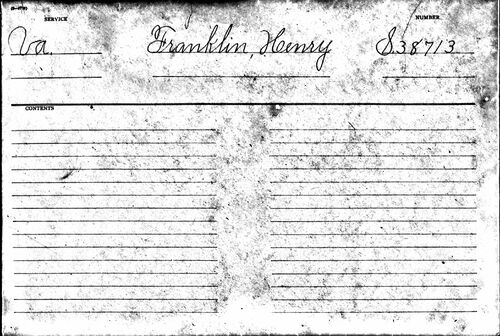 SERVICE NUMBER
Va. Franklin, Henry S.38713
CONTENTS